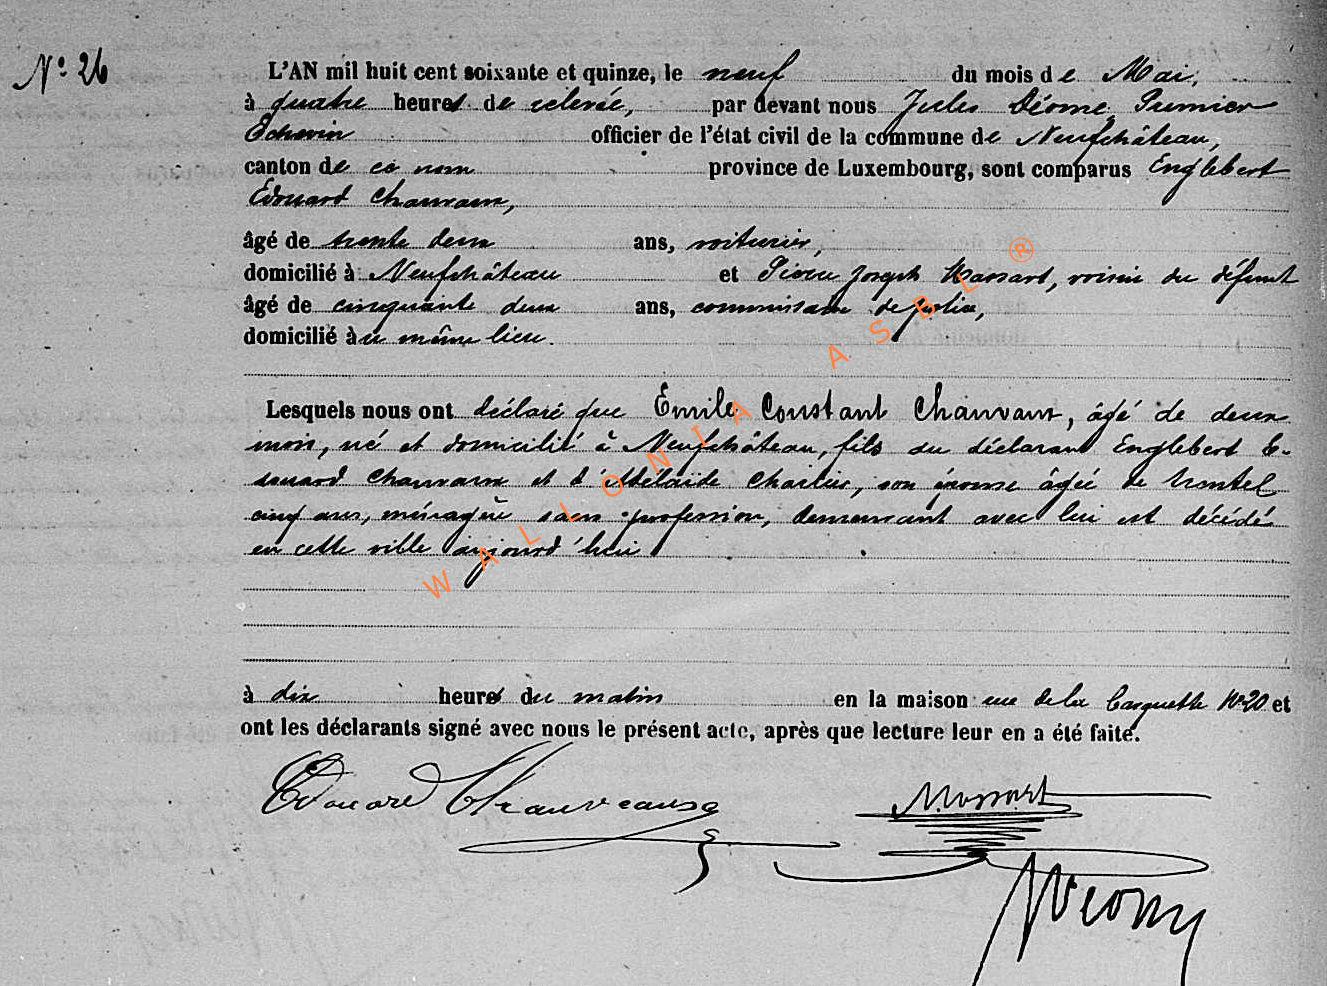 N° 26
L'AN mil huit cent soixante et quinze, le neuf du mois de Mai,
à quatre heures de relevée, par devant nous Jules Déome, Premier
Echevin officier de l'état civil de la commune de Neufchâteau,
canton de ce nom province de Luxembourg, sont comparus Englebert
Edouard Chauvaux,
âgé de trente deux ans, voiturier,
domicilié à Neufchâteau et Pierre Joseph Massart, voisin du défunt
âgé de cinquante deux ans, commissaire de police,
domicilié au même lieu.
Lesquels nous ont déclaré que Emile Constant Chauvaux, âgé de deux
mois, né et domicilié à Neufchâteau, fils du déclarant Englebert E-
douard Chauvaux et d'Adélaïde Charlier, son épouse âgée de trente
cinq ans, ménagère sans profession, demeurant avec lui est décédé
en cette ville aujourd'hui
à dix heures du matin en la maison rue de la Casquette N° 20 et
ont les déclarants signé avec nous le présent acte, après que lecture leur en a été faite.
Edouard Chauveaux
Massart
Déome
WALLONIA ASBL ®